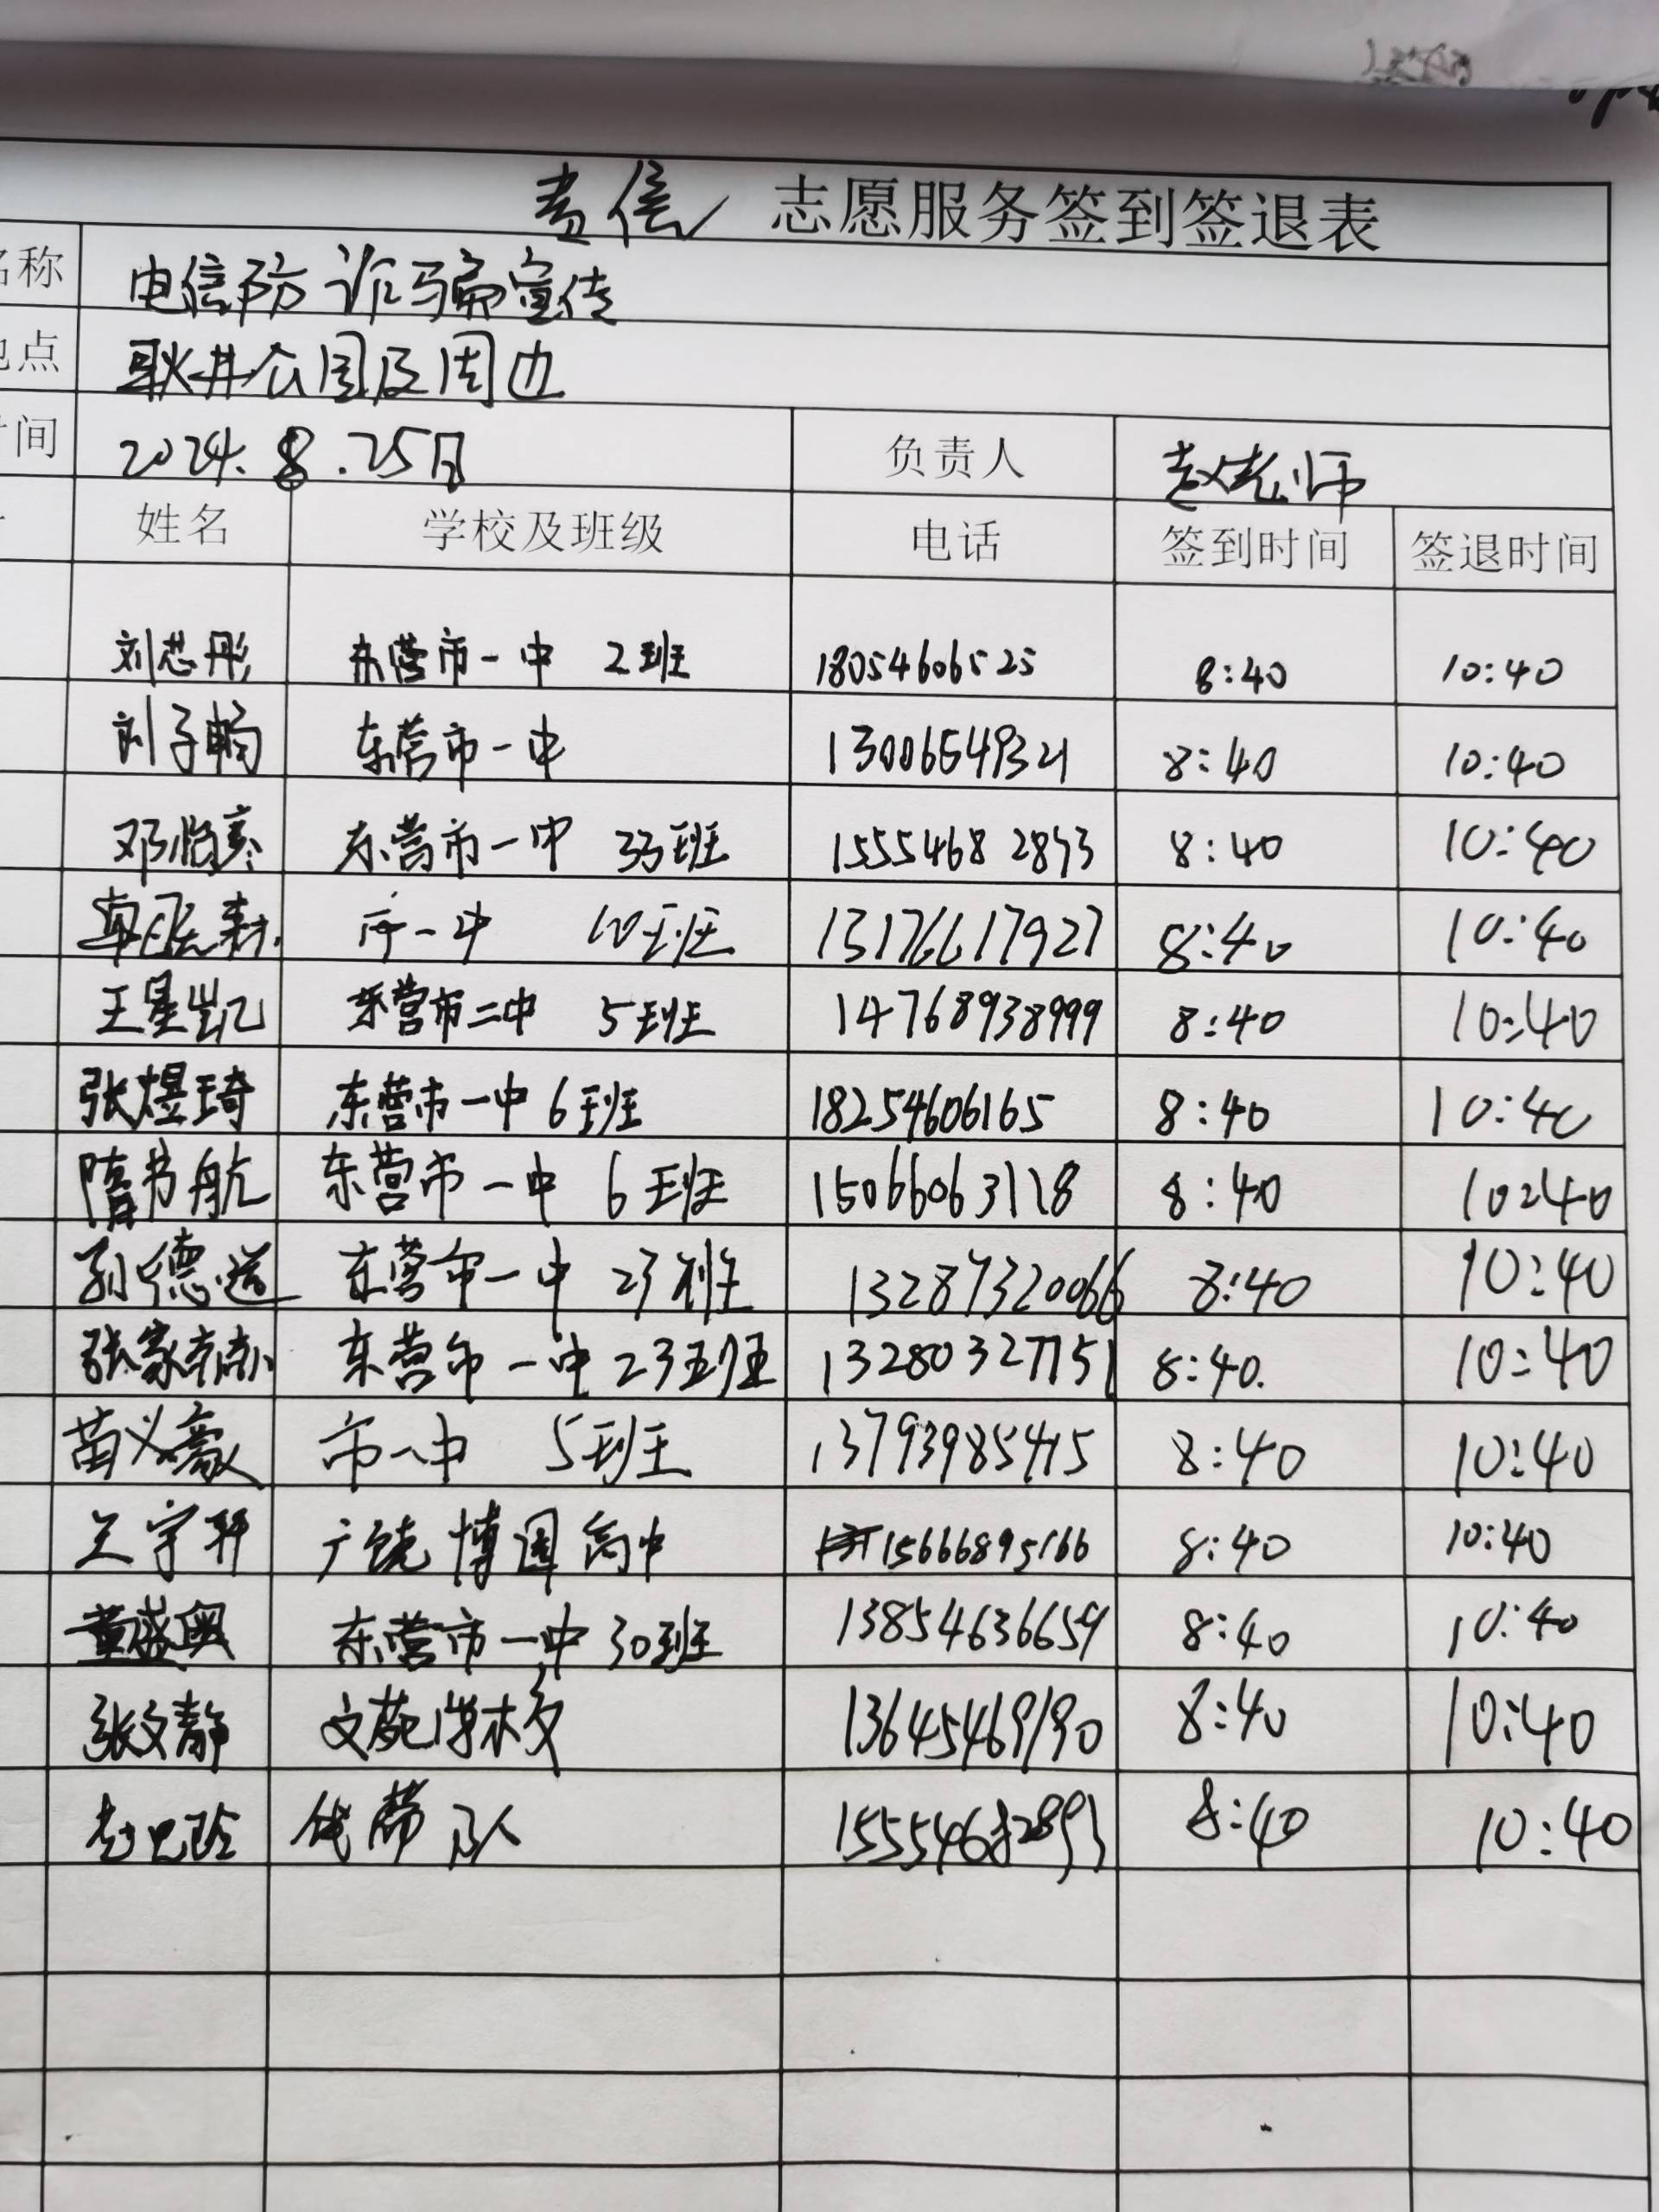 志愿服务签到签退表
名称 电信防诈骗宣传
地点 耿井公园及周边
时间 2024.8.25日 负责人 赵老师
姓名 学校及班级 电话 签到时间 签退时间
刘芯彤 东营市一中 2班 18054606525 8:40 10:40
刘子畅 东营市一中 13006549321 8:40 10:40
邓 东营市一中 33班 15554682893 8:40 10:40
市一中 10班 13176617927 8:40 10:40
王星凯 东营市二中 5班 14768938999 8:40 10:40
张煜琦 东营市一中 6班 18254606165 8:40 10:40
隋书航 东营市一中 6班 15066063118 8:40 10:40
孙德 东营市一中 23班 13287320066 8:40 10:40
张家赫 东营市一中 23班 13280327751 8:40. 10:40
苗义豪 市一中 5班 13793985415 8:40 10:40
王宇轩 广饶 博图高中 15666895166 8:40 10:40
董盛奥 东营市一中 30班 13854636659 8:40 10:40
张文静 文苑学校 13645469190 8:40 10:40
赵 队 15554682893 8:40 10:40